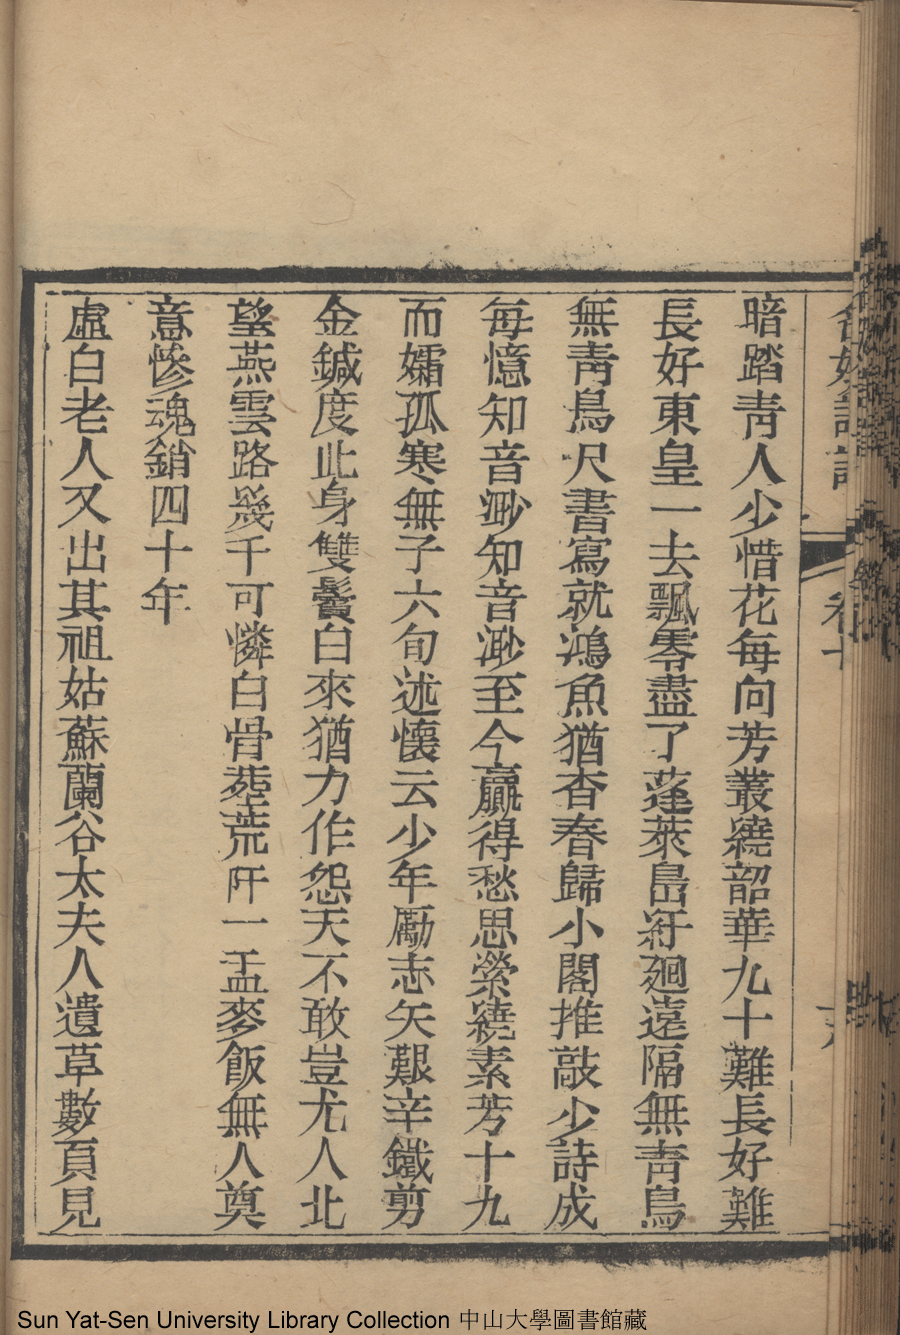 暗踏靑人少惜花每向芳叢繞韶華九十難長好難
長好東皇一去飄零盡了蓬萊島紆廻遠隔無靑鳥
無靑鳥尺書寫就鴻魚猶杳春歸小閣推敲少詩成
每憶知音渺知音渺至今贏得愁思縈繞素芳十九
而孀孤寒無子六旬述懷云少年勵志矢艱辛鐵剪
金鍼度此身雙鬢白來猶力作怨天不敢豈尤人北
望燕雲路幾千可憐白骨葬荒阡一盂麥飯無人奠
意慘魂銷四十年
虛白老人又出其祖姑蘇蘭谷太夫人遺草數頁見
卷十
Sun Yat-Sen University Library Collection 中山大學圖書館藏